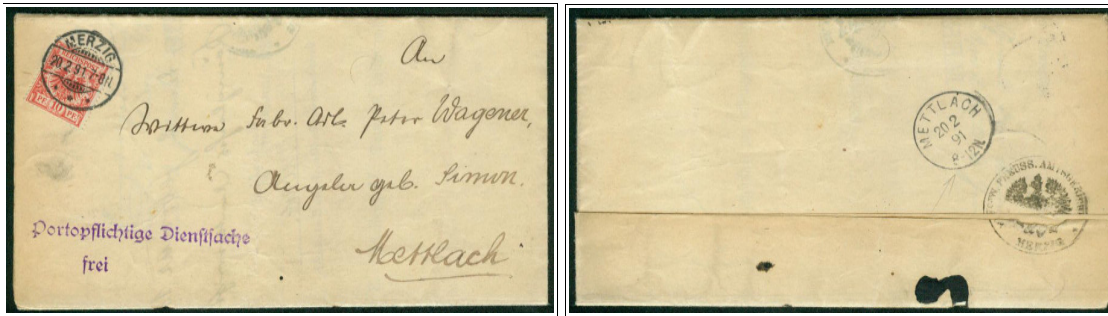 MERZIG
20.2.91. 7-8N.
10
An
Wittwe Fabr. Arb. Peter Wagener,
Angela geb. Simon.
Mettlach
Portopflichtige Dienstsache
frei
METTLACH
20 2
91
8-12N.
PREUSS. AMTSGERICHT
MERZIG